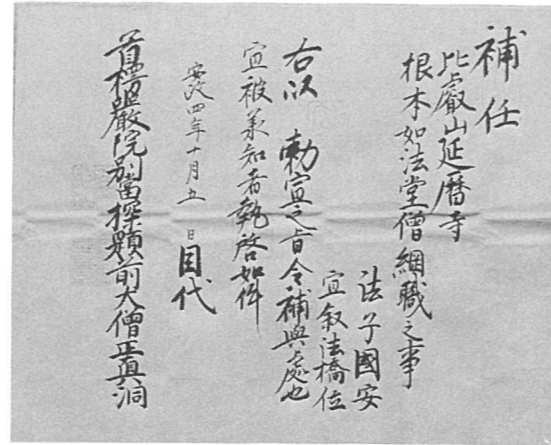 補任
比叡山延暦寺
根本如法堂僧綱職之事
法子國安
宜叙法橋位
右以　勅宣之旨令補與處也
宜被承知者執啓如件
安政四年十月五日目代
首楞嚴院別當探題前大僧正真洞